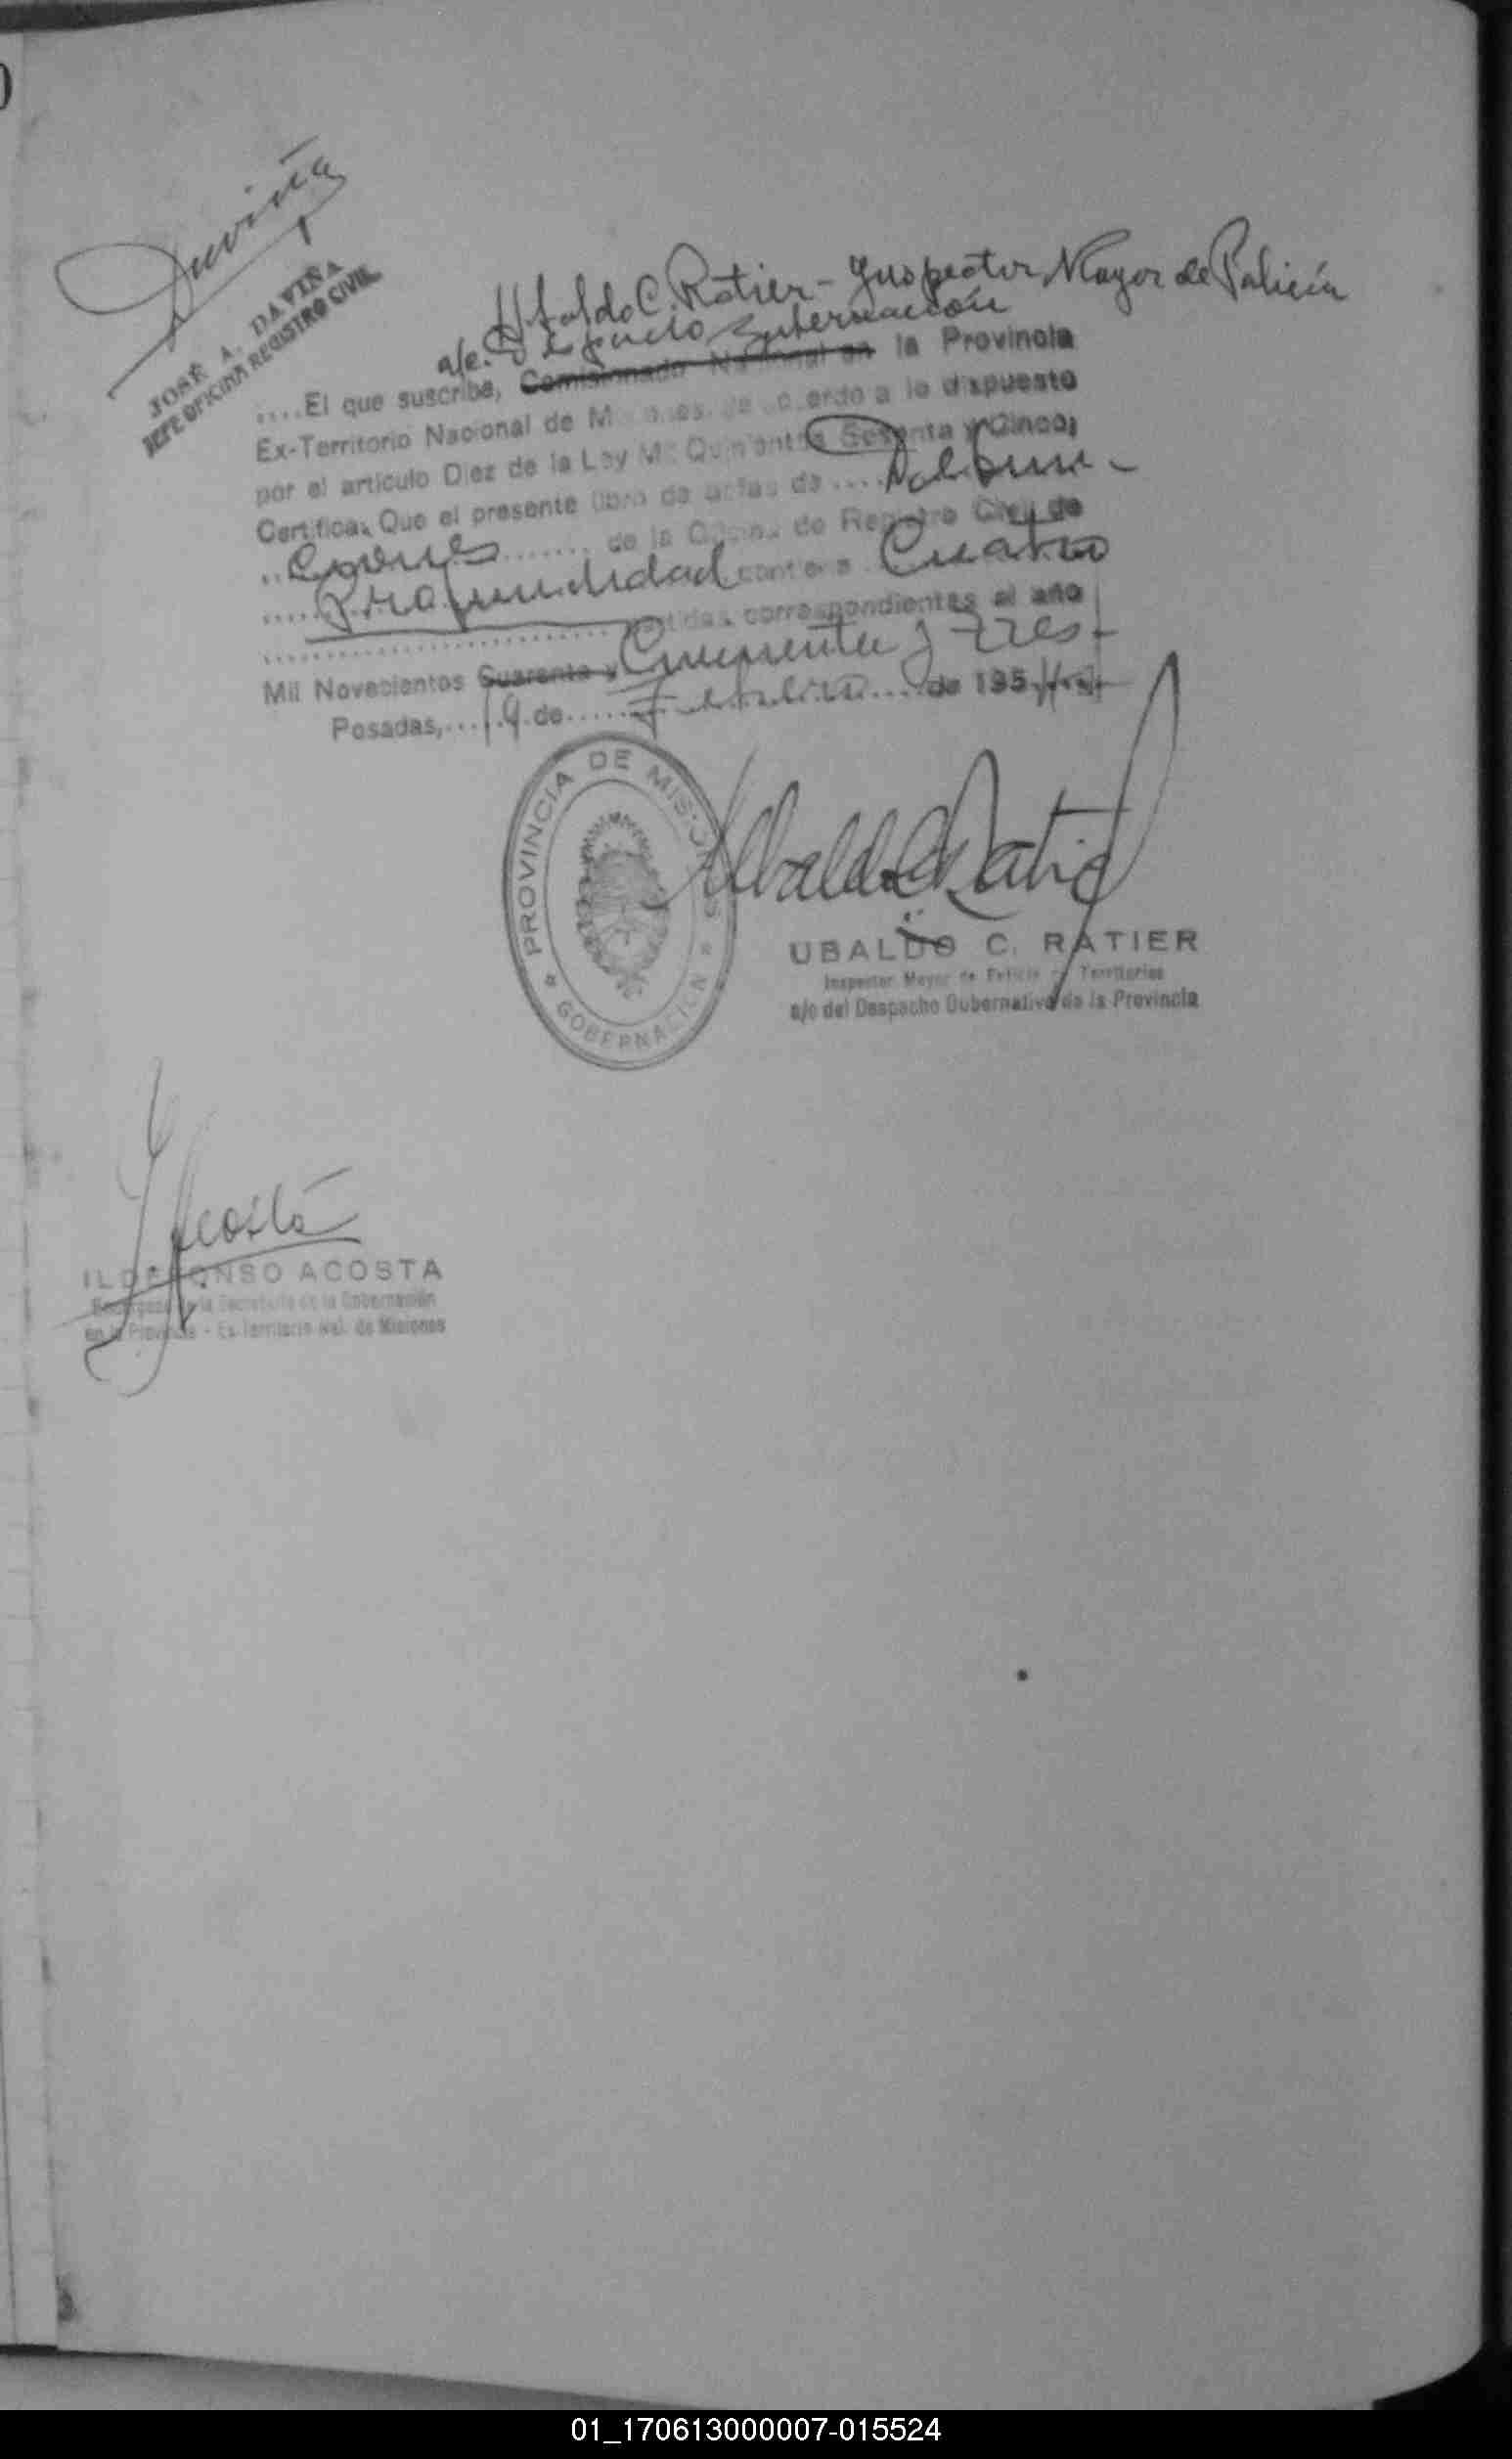 Daviña
JOSÉ A. DAVIÑA
JEFE OFICINA REGISTRO CIVIL
Ubaldo C. Ratier - Inspector Mayor de Policía
a/c. Despacho Gobernación
....El que suscribe, Comisionado Nacional en la Provincia
Ex-Territorio Nacional de Misiones, de acuerdo a lo dispuesto
por el artículo Diez de la Ley Mil Quinientos Sesenta y Cinco;
Certifica: Que el presente libro de actas de .... Defun-
..ciones........ de la Oficina de Registro Civil de
.... Profundidad contiene Cuatro
partidas correspondientes al año
Mil Novecientos Cuarenta y Cincuenta y tres.-
Posadas,....19.de.....Febrero....de 195
PROVINCIA DE MISIONES
GOBERNACION
Ubaldo C. Ratier
UBALDO C. RATIER
Inspector Mayor de Policía Territorios
a/c del Despacho Gubernativo de la Provincia
Acosta
ILDEFONSO ACOSTA
de la Secretaría de la Gobernación
en la Provincia - Ex-Territorio Nal. de Misiones
01_170613000007-015524